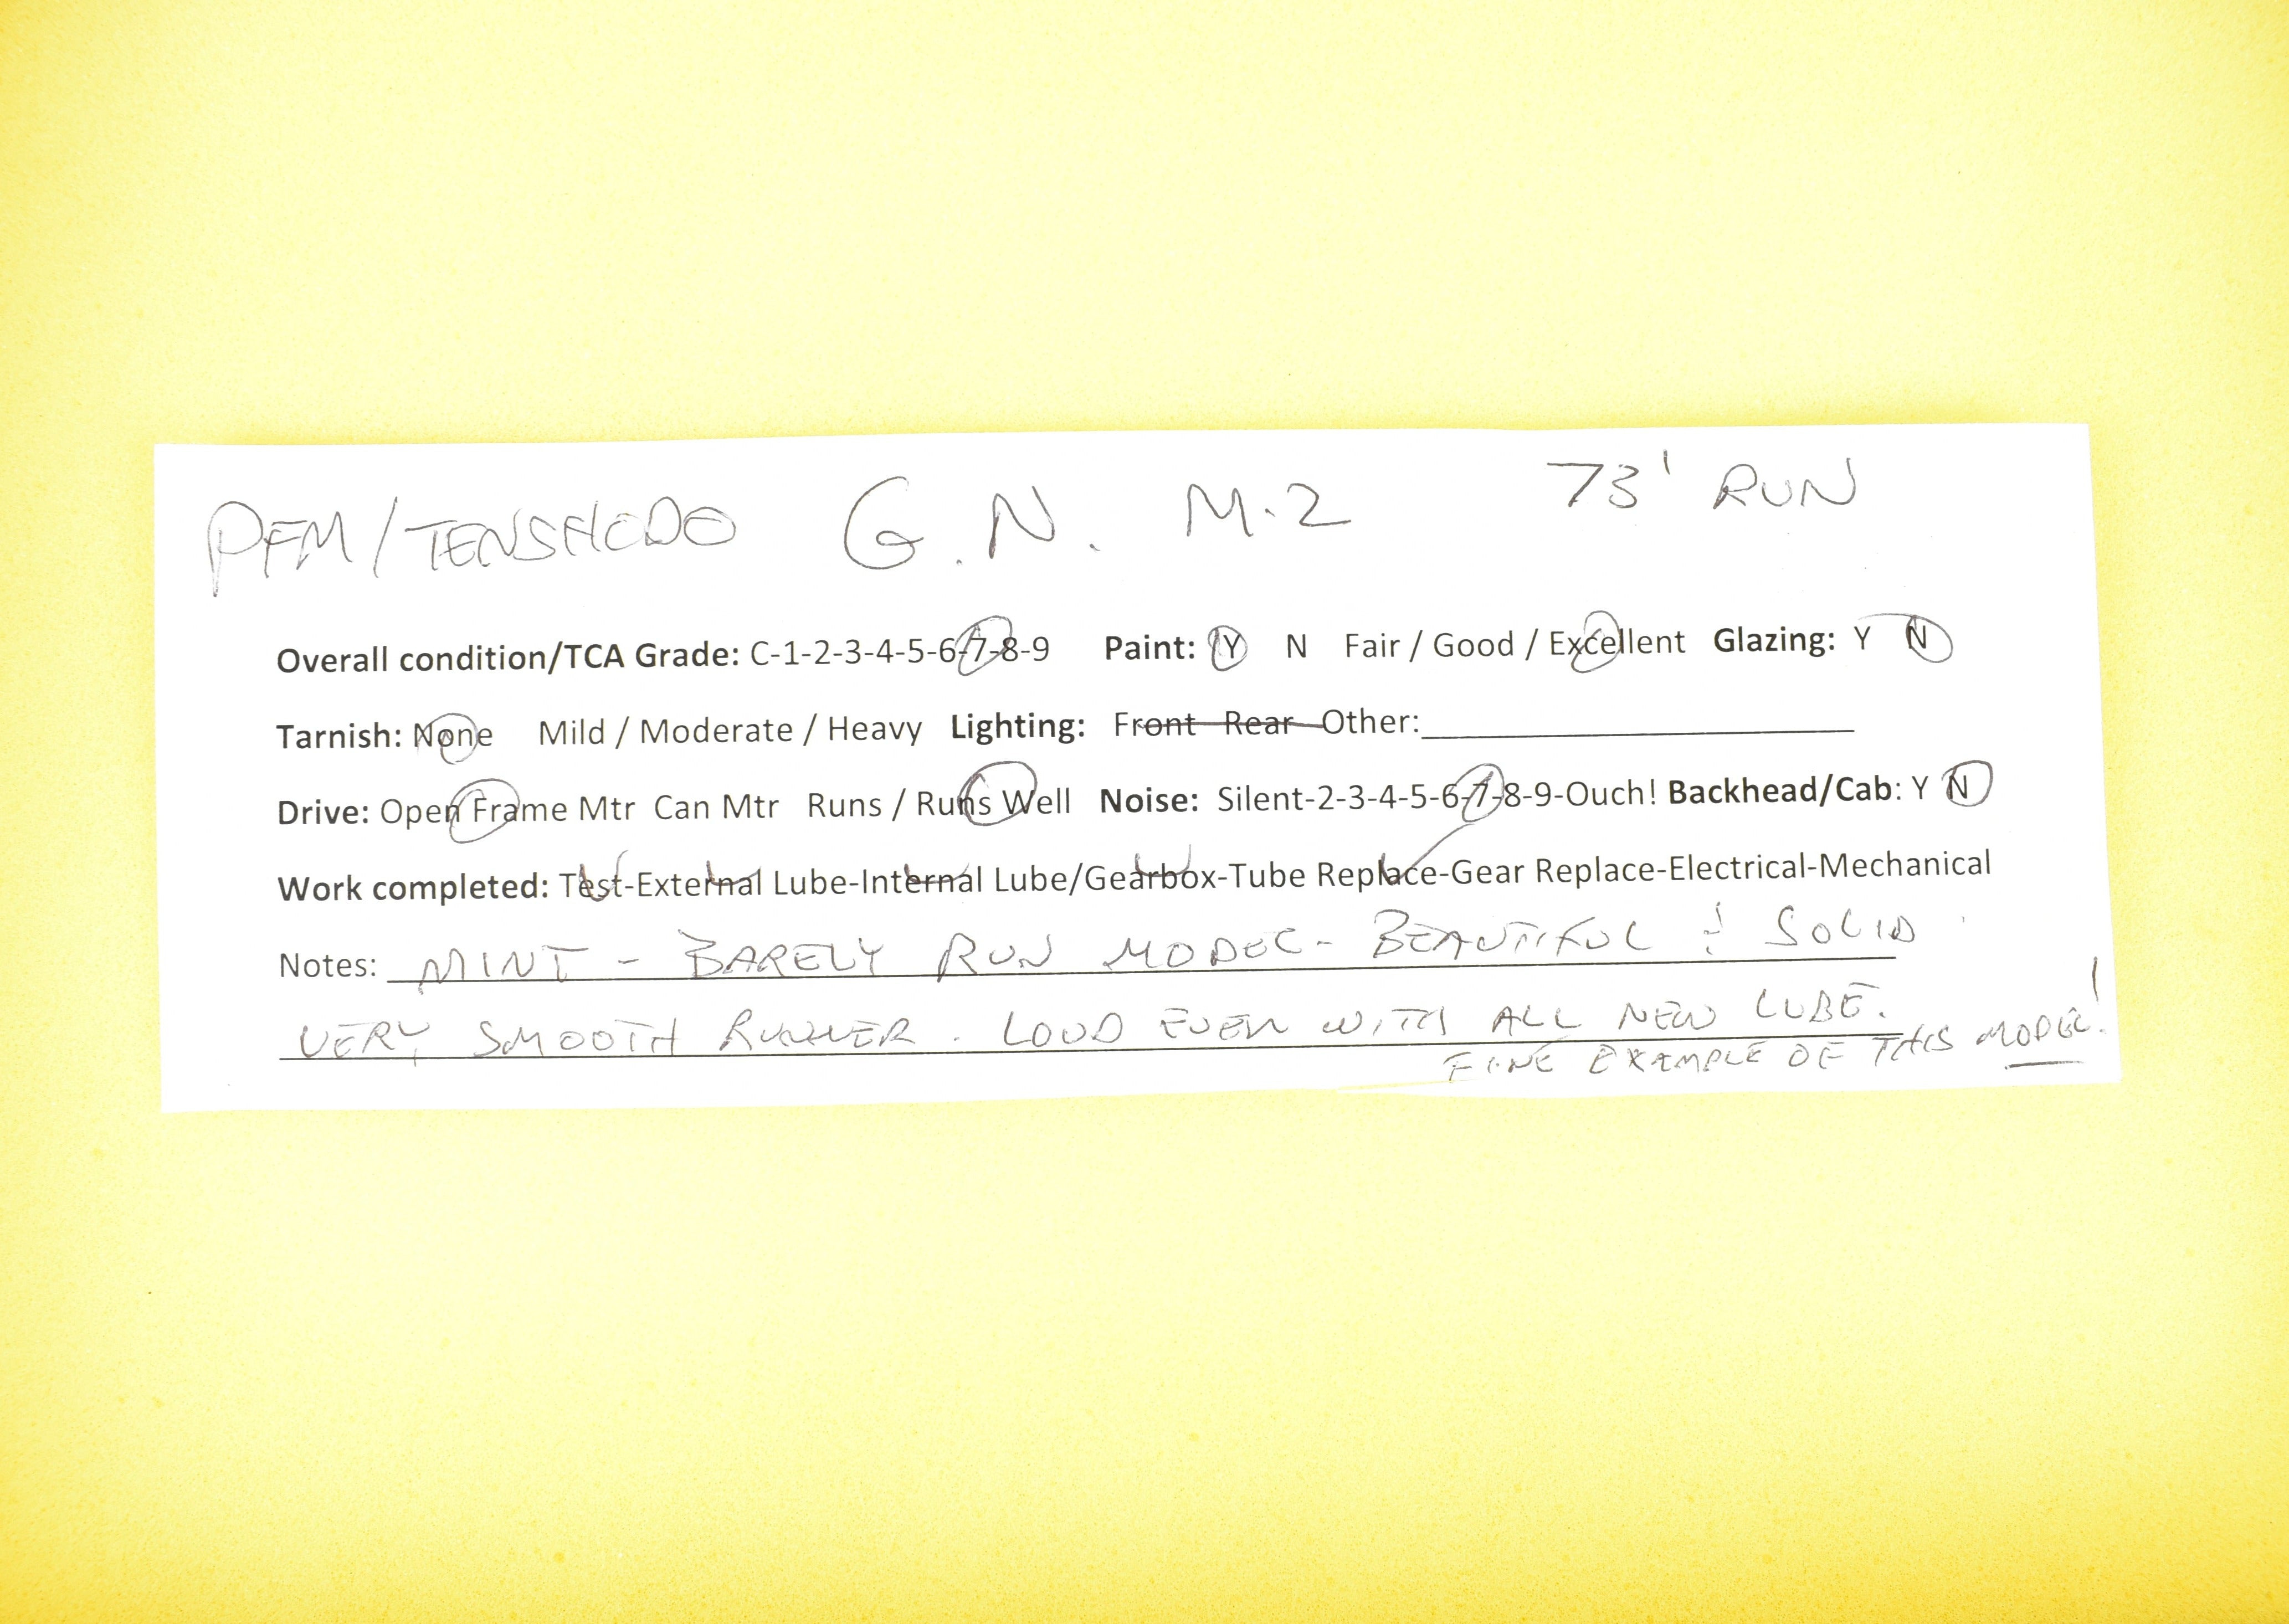 PFM/TENSHODO G.N. M.2 73' RUN
Overall condition/TCA Grade: C-1-2-3-4-5-6-7-8-9 Paint: Y N Fair / Good / Excellent Glazing: Y N
Tarnish: None Mild / Moderate / Heavy Lighting: Front Rear Other:
Drive: Open Frame Mtr Can Mtr Runs / Runs Well Noise: Silent-2-3-4-5-6-7-8-9-Ouch! Backhead/Cab: Y N
Work completed: Test-External Lube-Internal Lube/Gearbox-Tube Replace-Gear Replace-Electrical-Mechanical
Notes: MINT - BARELY RUN MODEL - BEAUTIFUL & SOLID
VERY SMOOTH RUNNER. LOUD EVEN WITH ALL NEW LUBE.
FINE EXAMPLE OF THIS MODEL!